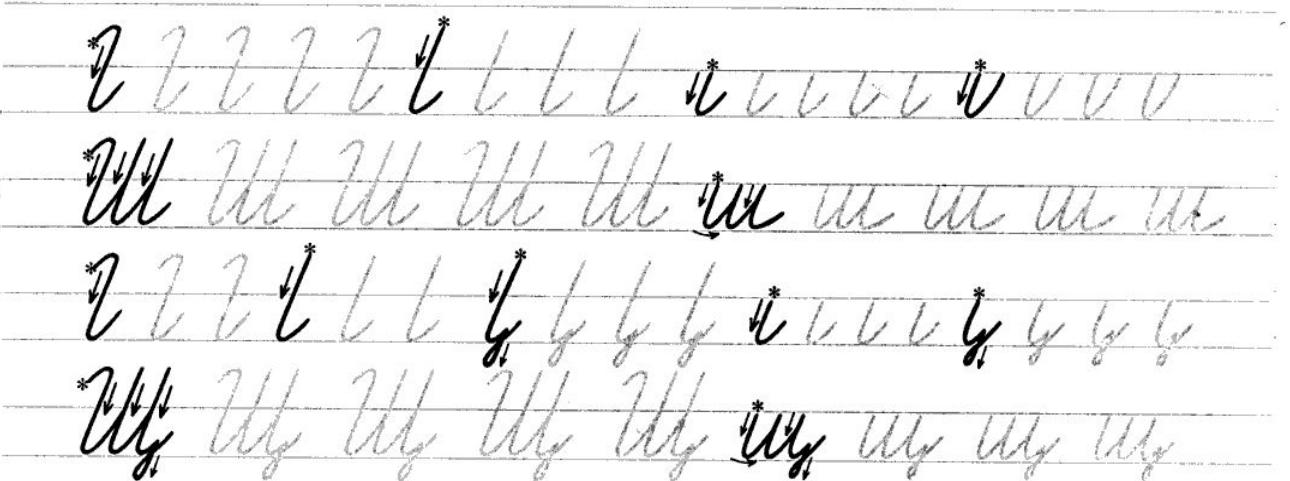 Ш Ш Ш Ш Ш ш ш ш ш ш
Щ Щ Щ Щ Щ щ щ щ щ